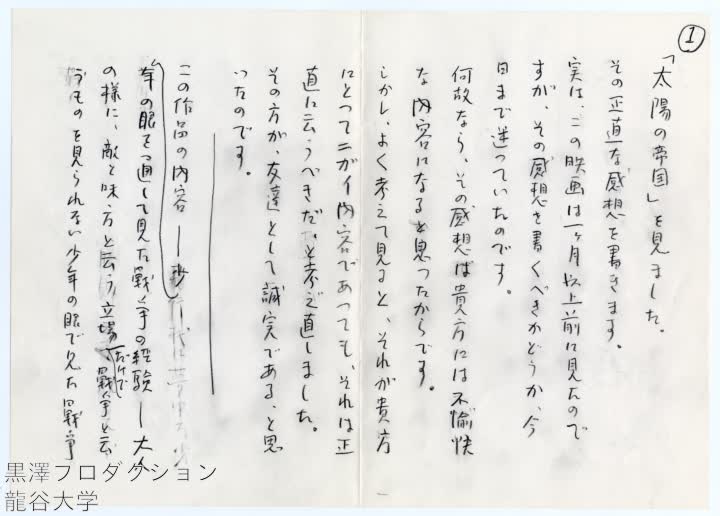 1
「太陽の帝国」を見ました。
その正直な感想を書きます。
実は、この映画は一ヶ月以上前に見たので
すが、その感想を書くべきかどうか、今
日まで迷っていたのです。
何故なら、その感想は貴方には不愉快
な内容になると思ったからです。
しかし、よく考えて見ると、それが貴方
にとってニガイ内容であっても、それは正
直に云うべきだ、と考え直しました。
その方が、友達として誠実である、と思
ったのです。
この作品の内容 — 少
年の眼を通して見た戦争の経験 — 大人
の様に、敵と味方と云う立場だけで戦争と云
うものを見られない少年の眼で見た戦争
黒澤プロダクション
龍谷大学